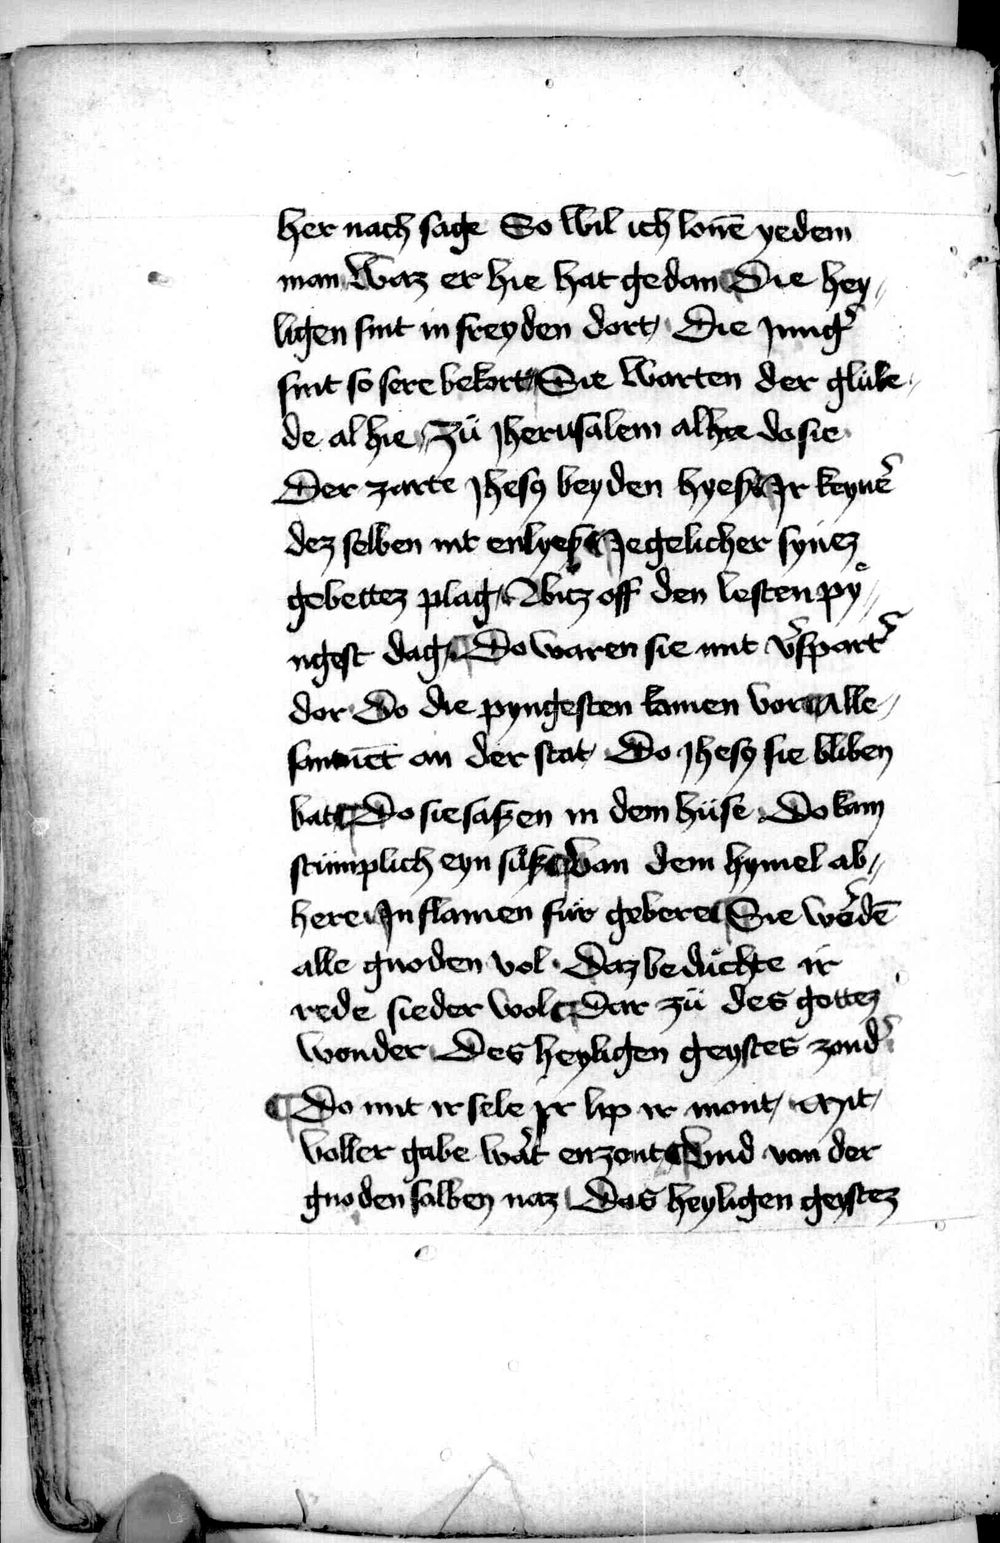 her nach sage So wil ich lonē yedem
man Waz er hie hat gedan Die hey⸗
ligen sint in freyden dort Die Jung͛
sint so sere bekort Sie warten der glübe⸗
de al hie Zü Jherusalem alhie do sie
Der zarte Jhesꝯ beyden hyeß Jr keynē
dez selben nit enlyeß Jegelicher synez
gebettez plag Bitz off den lesten py̍⸗
ngest dag Do waren sie mit v͛spart͛
dor Do die pyngesten kamen vor Alle⸗
samnēt an der stat Do Jhesꝯ sie bliben
bat Do sie saßen in dem hüse Do kam
stümplich eyn süß van dem hymel ab⸗
here Jn flamen für gebere Sie wͤdē
alle gnoden vol Daz beduchte ir
rede sieder wol Dar zü des gottez
wonder Des heyligen geystes zond͛
Do mit ir sele Jr lip ir mont Mit
voller gabe wa͛t enzont Vnd von der
gnoden salben naz Das heyligen geystez